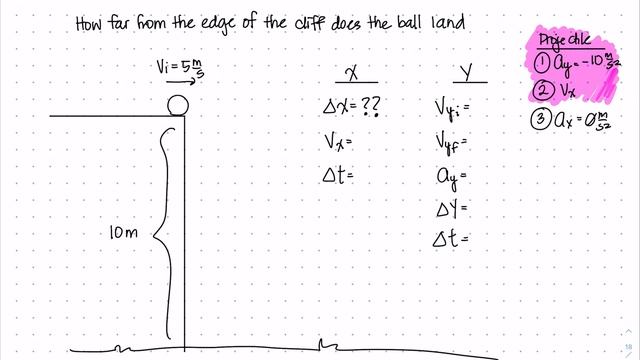 How far from the edge of the cliff does the ball land
Vi = 5 m/s
10m
X
Δx = ??
Vx =
Δt =
Y
Vyi =
Vyf =
ay =
ΔY =
Δt =
Projectile
① ay = -10 m/s2
② Vx
③ ax = 0 m/s2
18